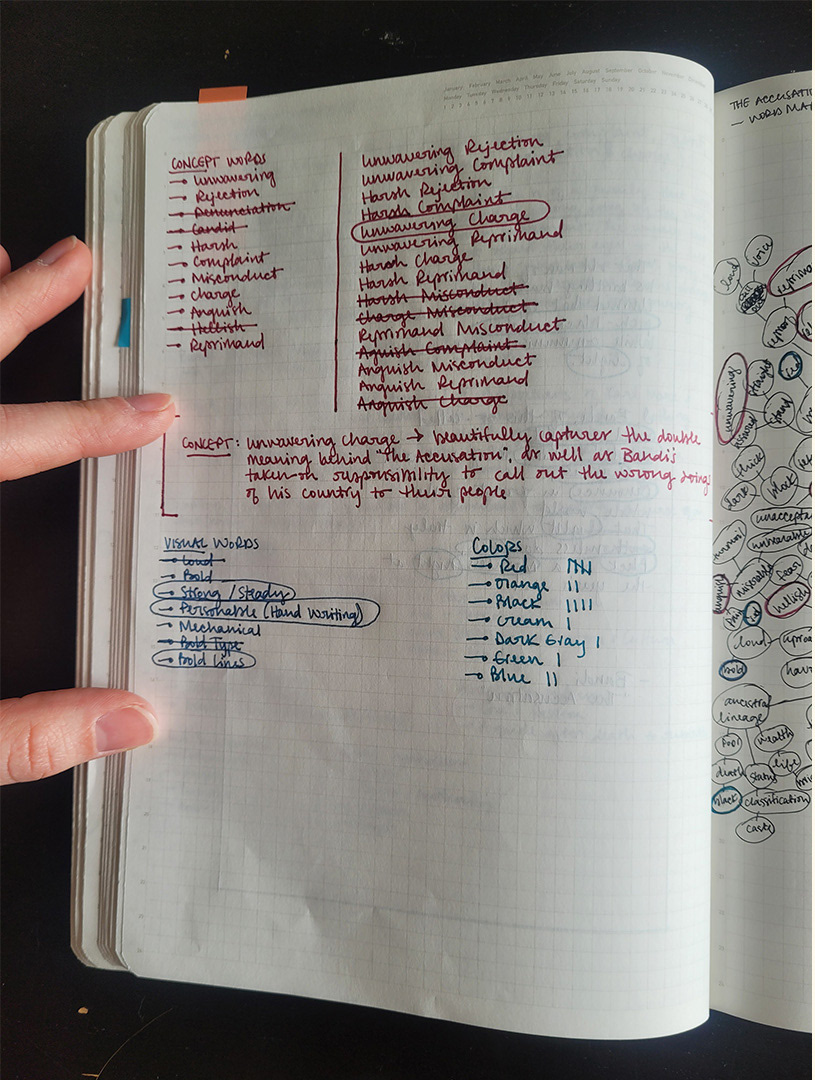 January February March April May June July August September October November December
Monday Tuesday Wednesday Thursday Friday Saturday Sunday
CONCEPT WORDS
→ Unwavering
→ Rejection
→ Denunciation
→ Candid
→ Harsh
→ Complaint
→ Misconduct
→ Charge
→ Anguish
→ Hellish
→ Reprimand
Unwavering Rejection
Unwavering Complaint
Harsh Rejection
Harsh Complaint
Unwavering Charge
Unwavering Reprimand
Harsh Charge
Harsh Reprimand
Harsh Misconduct
Charge Misconduct
Reprimand Misconduct
Aguish Complaint
Anguish Misconduct
Anguish Reprimand
Anguish Charge
CONCEPT: Unwavering Charge → beautifully captures the double
meaning behind "The Accusation", as well as Bandi's
taken-on responsibility to call out the wrong doings
of his country to their people
VISUAL WORDS
→ Loud
→ Bold
→ Strong / Steady
→ Personable (Hand Writing)
→ Mechanical
→ Bold Type
→ Bold Lines
COLORS
→ Red
→ Orange II
→ Black IIII
→ Cream I
→ Dark Gray I
→ Green I
→ Blue II
THE ACCUSATI
— WORD MA
voice
loud
reprima
unwavering
straight
stand
thick
dark
black
unaccepta
unbearable
fear
miserable
anguish
hellish
pain
cloud
bold
hav
ancestral
lineage
poor
wealth
death
status
life
black
classification
caste